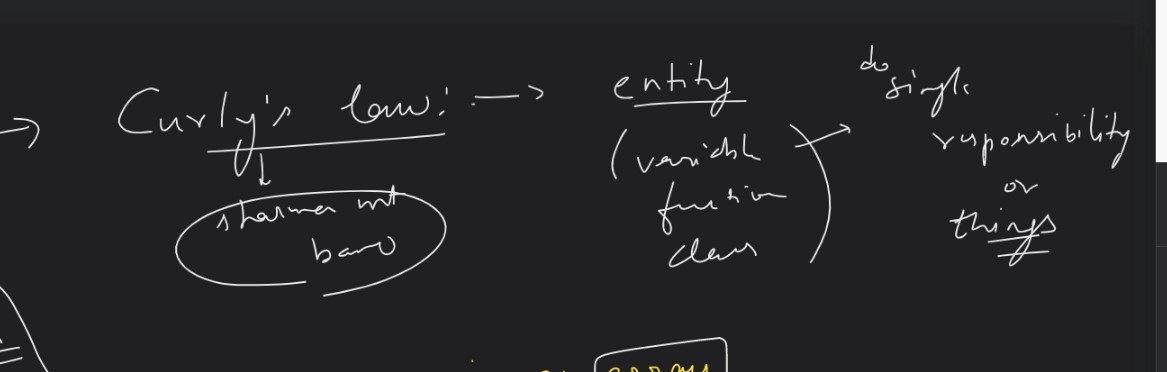 → Curly's law: → entity
(variable
function
class)
do single
responsibility
or
things
sharma mt
bano